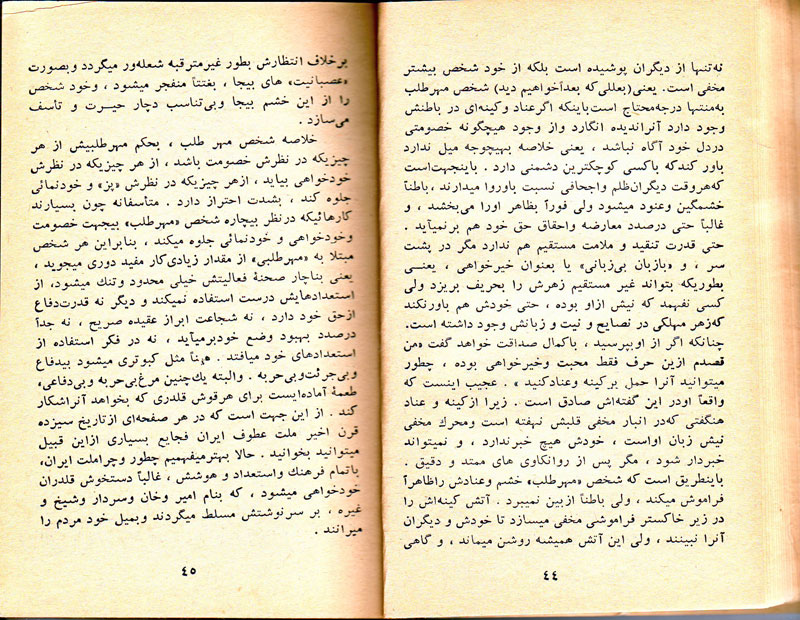 نه‌تنها از دیگران پوشیده است بلکه از خود شخص بیشتر
مخفی است. یعنی(بعللی‌که بعدآخواهیم دید) شخص مهرطلب
به‌منتها درجه‌محتاج است‌باینکه اگرعناد وکینه‌ای در باطنش
وجود دارد آنراندیده انگارد واز وجود هیچگونه خصومتی
دردل خود آگاه نباشد ، یعنی خلاصه بهیچوجه میل ندارد
باور کندکه باکسی کوچکترین دشمنی دارد . باینجهت‌است
که‌هروقت دیگران‌ظلم واجحافی نسبت باوروا میدارند ،باطنآ
خشمگین وعنود میشود ولی فورآ بظاهر اورا می‌بخشد ، و
غالبآ حتی درصدد معارضه واحقاق حق خود هم برنمیآید .
حتی قدرت تنقید و ملامت مستقیم هم ندارد مگر در پشت
سر ، و «بازبان بی‌زبانی» یا بعنوان خیرخواهی ، یعنـی
بطوریکه بتواند غیر مستقیم زهرش را بحریف بریزد ولی
کسی نفهمد که نیش ازاو بوده ، حتی خودش هم باورنکند
که‌زهر مهلکی در نصایح و نیت و زبانش وجود داشته است.
چنانکه اگر از اوبپرسید ، باکمال صداقت خواهد گفت «من
قصدم ازین حرف فقط محبت وخیرخواهی بوده ، چطور
میتوانید آنرا حمل برکینه وعنادکنید » . عجیب اینست که
واقعآ اودر این گفته‌اش صادق است . زیرا ازکینه و عناد
هنگفتی که‌در انبار مخفی قلبش نهفته است ومحرك مخفی
نیش زبان اواست ، خودش هیچ خبرندارد ، و نمیتواند
خبردار شود ، مگر پس از روانکاوی های ممتد و دقیق .
باینطریق است که شخص «مهرطلب» خشم وعنادش راظاهرآ
فراموش میکند ، ولی باطنآ ازبین نمیبرد . آتش کینه‌اش را
در زیر خاکستر فراموشی مخفی میسازد تا خودش و دیگران
آنرا نبینند ، ولی این آتش همیشه روشن میماند ، و گاهی
۴۴
برخلاف انتظارش بطور غیرمترقبه شعله‌ور میگردد وبصورت
«عصبانیت» های بیجا ، بغتتآ منفجر میشود ، وخود شخص
را از این خشم بیجا وبی‌تناسب دچار حیـرت و تاسف
می‌سازد .
خلاصه شخص مهر طلب ، بحکم مهرطلبیش از هر
چیزیکه در نظرش خصومت باشد ، از هر چیزیکه در نظرش
خودخواهی بیاید ، ازهر چیزیکه در نظرش «پز» و خودنمائی
جلوه کند ، بشدت احتراز دارد . متاسفانه چون بسیارند
کارهائیکه درنظر بیچاره شخص «مهرطلب» بیجهت خصومت
وخودخواهی و خودنمائی جلوه میکند ، بنابراین هر شخص
مبتلا به «مهرطلبی» از مقدار زیادی‌کار مفید دوری میجوید ،
یعنی بناچار صحنهٔ فعالیتش خیلی محدود وتنك میشود، از
استعدادهایش درست استفاده نمیکند و دیگر نه قدرت‌دفاع
ازحق خود دارد . نه شجاعت ابراز عقیده صریح ، نه جدآ
درصدد بهبود وضع خودبرمیآید ، نه در فکر استفاده از
استعدادهای خود میافتد . همنآ مثل کبوتری میشود بیدفاع
وبی‌جرئت‌وبی‌حربه . والبته یك‌چنین مرغ‌بی‌حربه وبی‌دفاعی،
طعمهٔ آماده‌ایست برای هرقوش قلدری که بخواهد آنراشکار
کند . از این جهت است که در هر صفحه‌ای ازتاریخ سیزده
قرن اخیر ملت عطوف ایران فجایع بسیاری ازاین قبیل
میتوانید بخوانید . حالا بهترمیفهمیم چطور وچراملت ایران،
باتمام فرهنك واستعداد و هوشش ، غالبآ دستخوش قلدران
خودخواهی میشود ، که بنام امیر وخان وسردار وشیخ و
غیره ، بر سرنوشتش مسلط میگردند وبمیل خود مردم را
میرانند .
۴۵